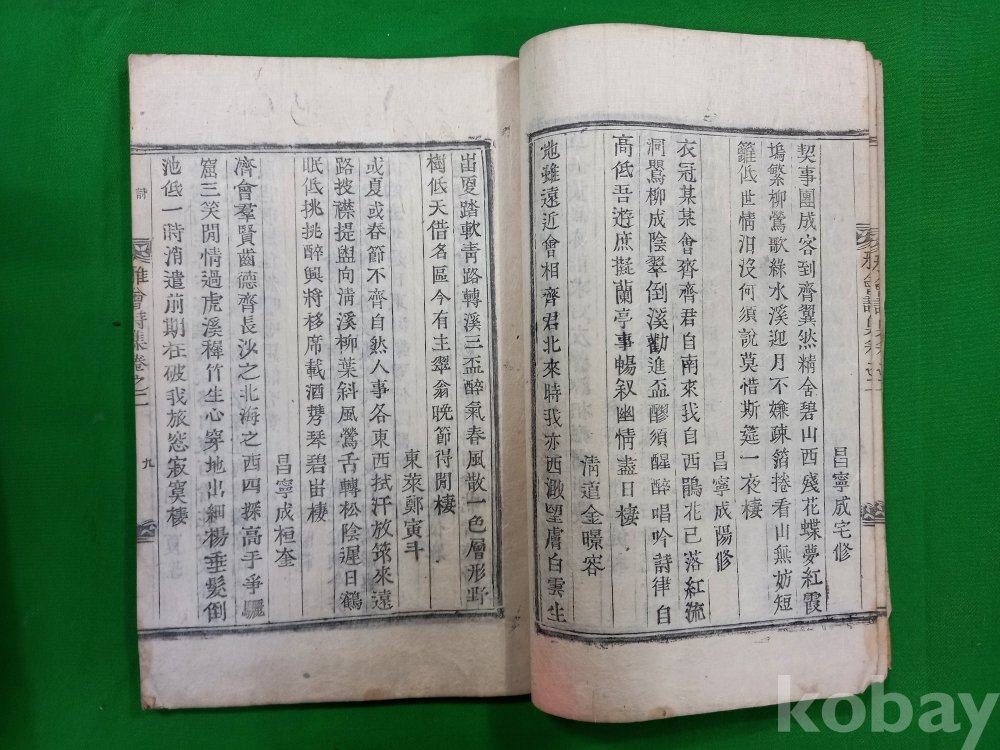 昌寧成宅修
契事團成客到齊翼然精舍碧山西殘花蝶夢紅霞
塢繁柳鶯歌綠水溪迎月不嫌疎箔捲看山無妨短
籬低世情汨沒何須說莫惜斯筵一夜棲
昌寧成陽修
衣冠某某會齊齊君自南來我自西鵑花已落紅流
洞鸎柳成陰翠倒溪勸進盃醪須醒醉唱吟詩律自
高低吾遊庶擬蘭亭事暢叙幽情盡日棲
淸道金暻容
地雖遠近會相齊君北來時我亦西漵望膚白雲生
峀夏踏軟靑路轉溪三盃醉氣春風散一色層形野
樹低天借名區今有主翠翁晩節得閒棲
東萊鄭寅斗
或夏或春節不齊自然人事各東西拭汗放筇來遠
路披襟提盥向淸溪柳葉斜風鶯舌轉松陰遲日鶴
眠低挑挑醉興將移席載酒携琴碧峀棲
昌寧成桓奎
濟會羣賢齒德齊長沙之北海之西四探高手爭驪
窟三笑閒情過虎溪稺竹生心穿地出細楊垂髮倒
池低一時消遣前期在破我旅窓寂寞棲
詩
雅會詩集卷之二
九
kobay